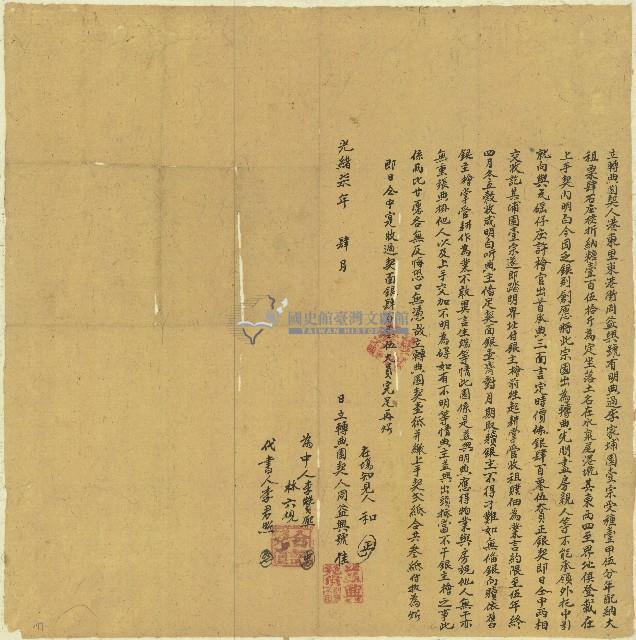 立轉典園契人港東里東港街周益興號有明典過宗家埔園壹宗受種壹甲伍分年配納大
租粟肆石庄後折納糖壹百伍拾斤為定坐落土名在水裏尾港流其東西四至界址俱登載在
上手契內明白今因乏銀別創愿將此宗園出為轉典先問盡房親人等不能承領外托中引
就向與元磘仔庄許檜官出首承典三面言定時價佛銀肆百零伍大員正銀契即日仝中兩相
交收訖其埔園壹宗遂即踏明界址付銀主檜前往起耕掌管收租贌佃為業言約限至伍年終
四月冬立穀收成明白听典主備足契面銀壹齊對月期取贖銀主不得刁難如無備銀向贖依舊
銀主檜掌管耕作為業不敢異言生端等情此園係是益興明典應得物業與房親他人無干亦
無重張典掛他人以及上手交加不明為碍如有不明等情典主益興出頭抵當不干銀主檜之事此
係兩比甘愿各無反悔恐口無憑故立轉典園契壹紙并繳上手契貳紙合共叁紙付執為炤
即日仝中實收過契面銀肆百零伍大員完足再炤
國史館臺灣文獻館
TAIWAN HISTORICA
在塲知見人 和
光緒柒年 肆月 日立轉典園契人周益興號
為中人李
林六
代書人李君熙